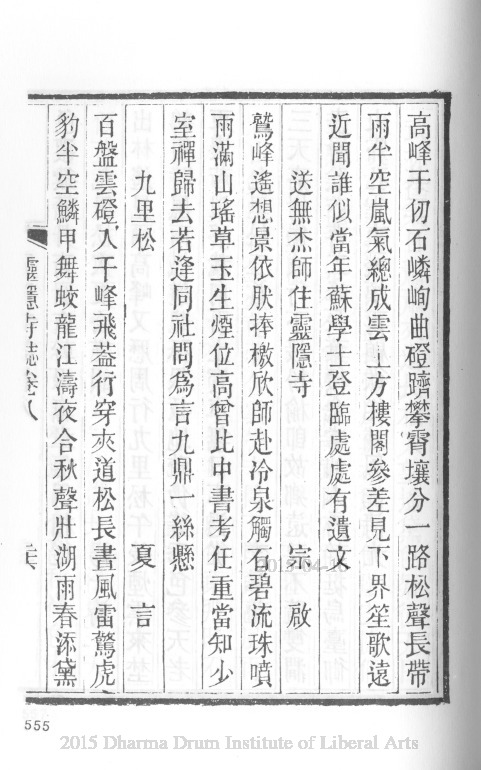 高峰千仞石嶙峋曲磴躋攀霄壤分一路松聲長帶
雨半空嵐氣總成雲上方樓閣參差見下界笙歌遠
近聞誰似當年蘇學士登臨處處有遺文
送無杰師住靈隱寺 宗啟
鷲峰遙想景依肰捧檄欣師赴冷泉觸石碧流珠噴
雨滿山瑤草玉生煙位高曾比中書考任重當知少
室禪歸去若逢同社問爲言九鼎一絲懸
九里松 夏言
百盤雲磴入千峰飛葢行穿夾道松長晝風雷驚虎
豹半空鱗甲舞蛟龍江濤夜合秋聲壯湖雨春添黛
靈隱寺誌卷八
555
2015 Dharma Drum Institute of Liberal Arts